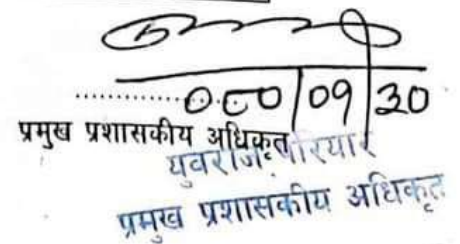 ०८०|०१|३०
प्रमुख प्रशासकीय अधिकृत
युवराज परियार
प्रमुख प्रशासकीय अधिकृत